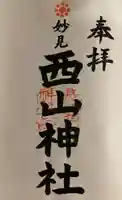 奉拝
妙見
西山神社